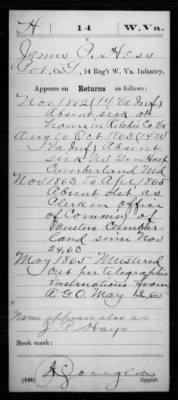 H | 14 | W.Va.
James P. Hess
Pvt., Co. G, 14 Reg't W. Va. Infantry.
Appears on Returns as follows:
Nov 1862 (14 Va Inf)
Absent sick at
home in Ritchie Co Va
Aug to Oct 1863 (14 W
Va Inf) Absent
sick US Gen Hosp
Cumberland Md
Nov 1863 to Apr 1865
Absent det. as
Clerk in office
of Commsy of
Musters Cumber-
land since Nov
24, 63
May 1865 Mustered
out per telegraphic
instructions from
A.G.O. May 12, 65
Name appears also as
J. P. Hays
Book mark:
(546)
Copyist.